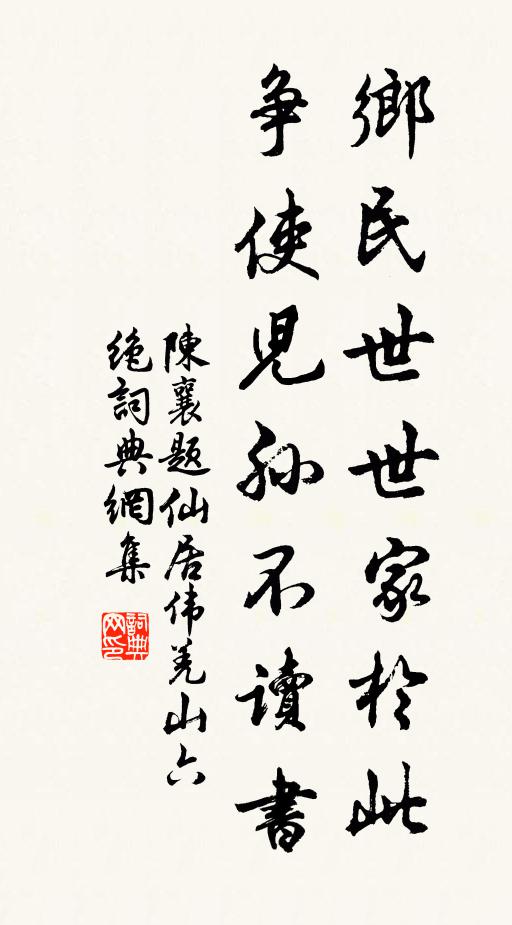 鄉民世世家於此
争使児孙不讀書
陳襄题仙居伟羌山六
绝詞典網集
詞典
网印